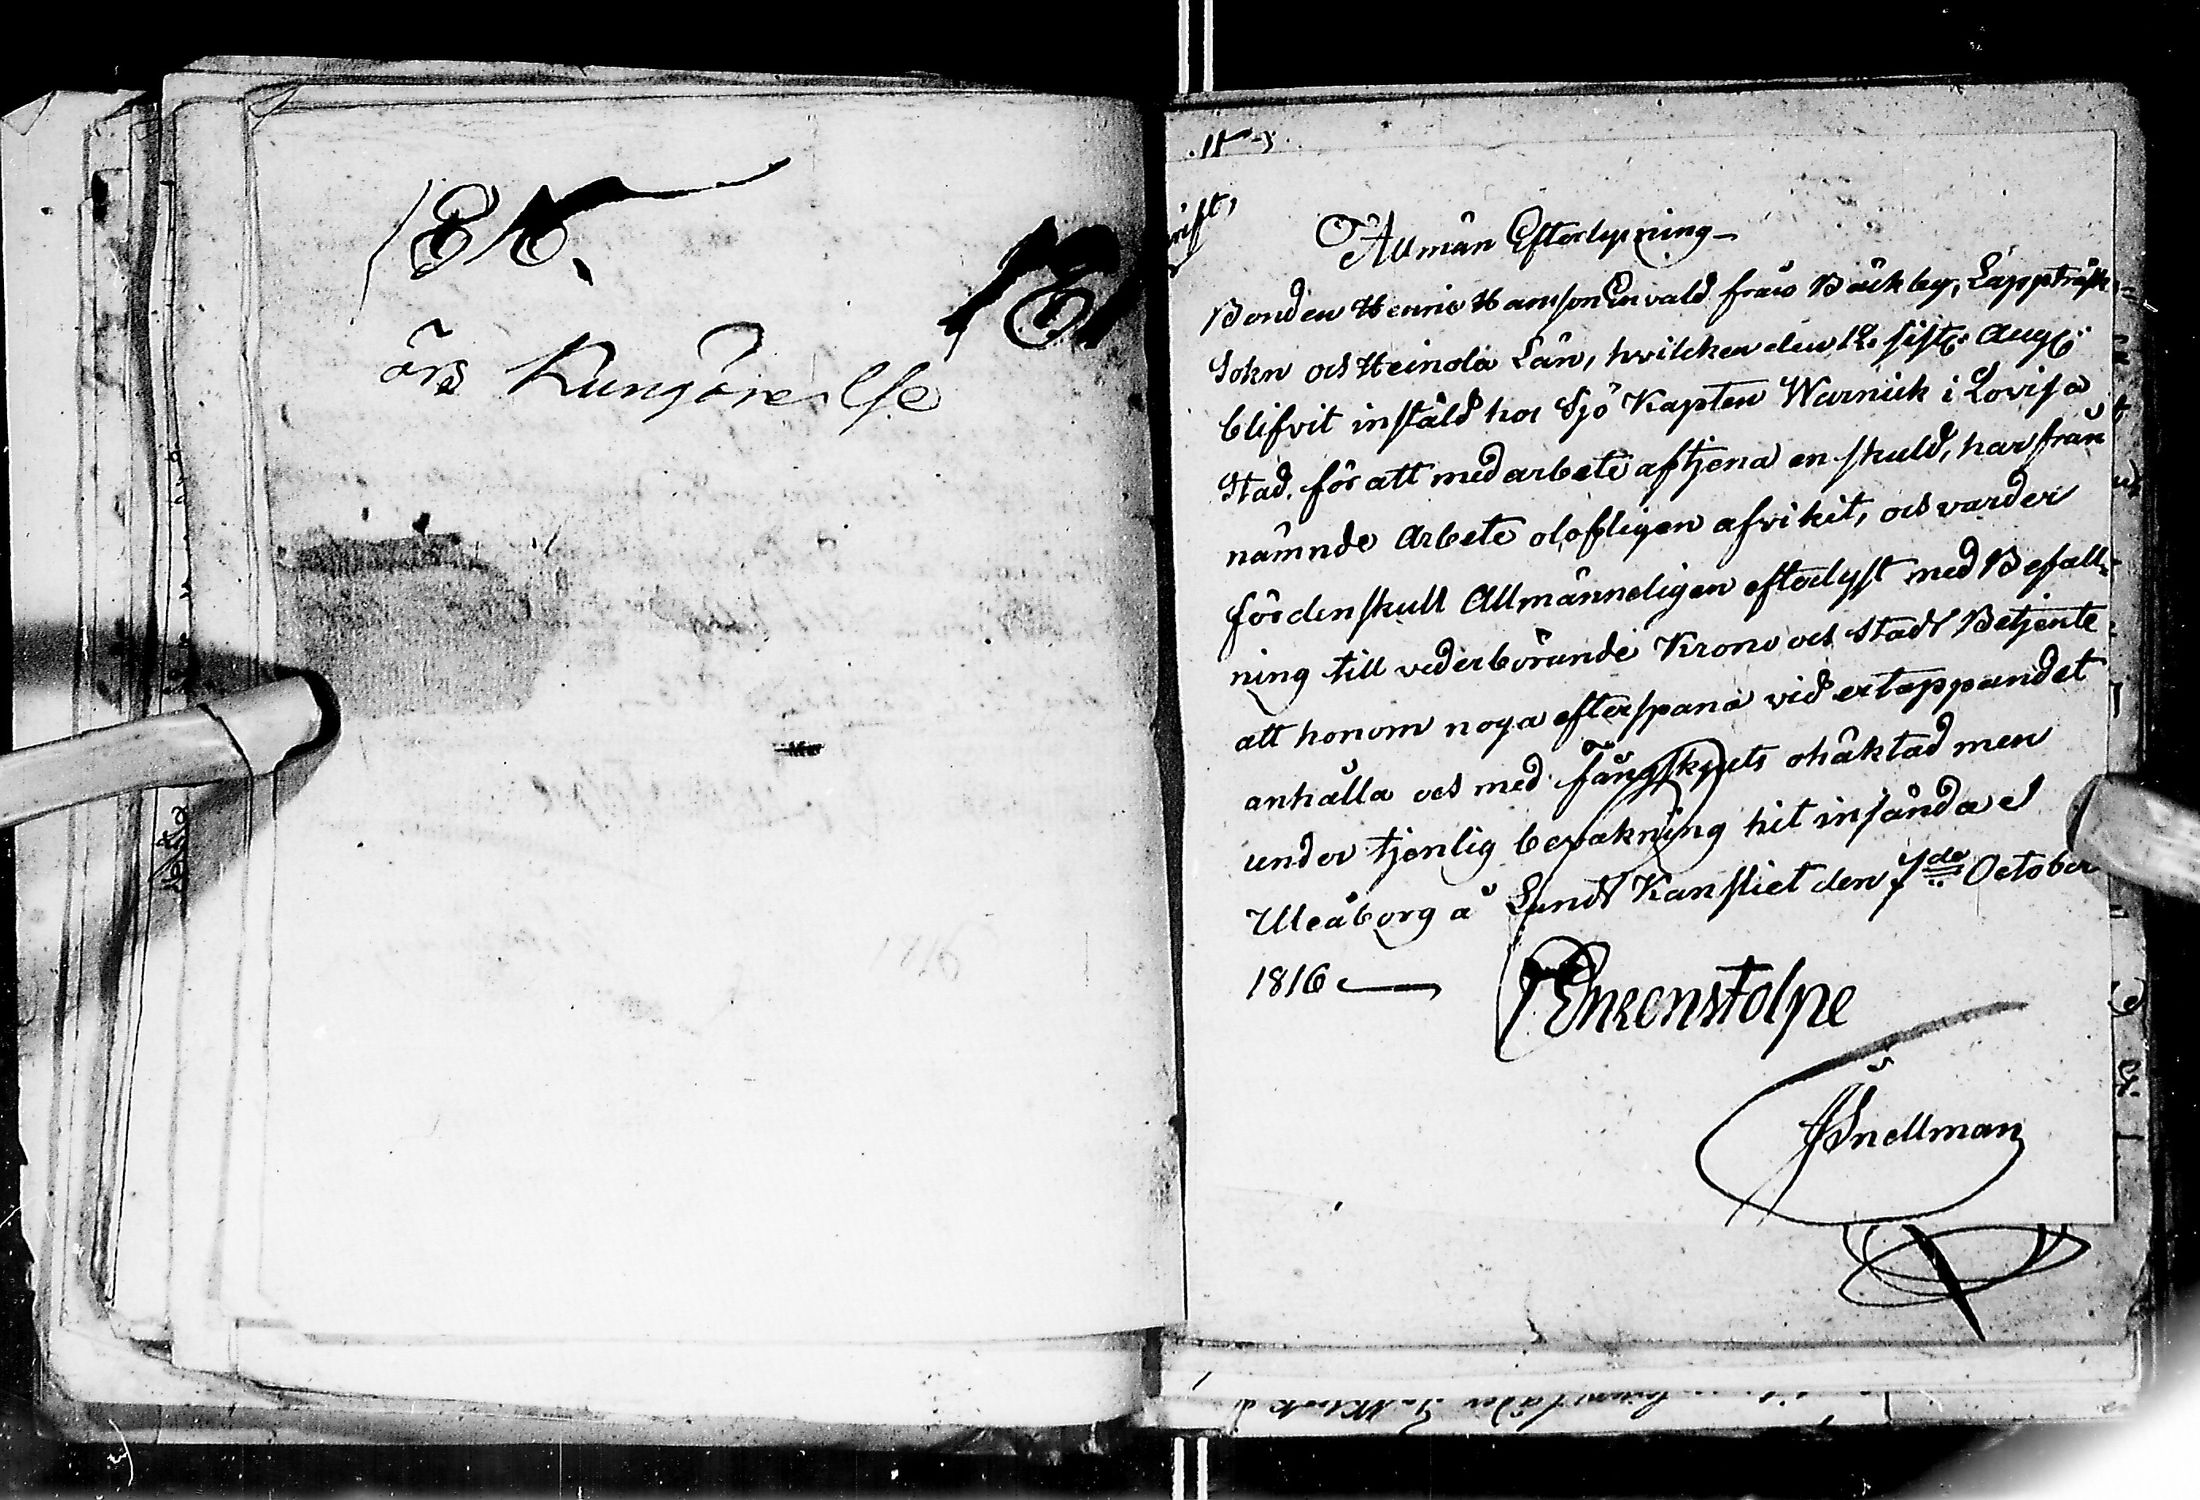 1816.
års Kungörelse
Allmän Efterlysning
Bonden Henric Hansson Envald från Bäckby, Lappträsk
Sokn och Heinola Län, hvilcken den 12 sistl. Aug.
blifvit instäld hos Sjö Kapten Warnick i Lovisa
Stad för att med arbete aftjena en skuld, har från
nämnde Arbete olofligen afvikit, och varder
fördenskull Allmänneligen efterlyst med Befall-
ning till vederbörande Krono och Stads Betjente
att honom noga efterspana vid ertappandet
anhålla och med fångskjuts ohäktad men
under tjenlig bevakning hit insända
Uleåborg å Lands Kansliet den 7de October
1816
Ehrenstolpe
Snellman